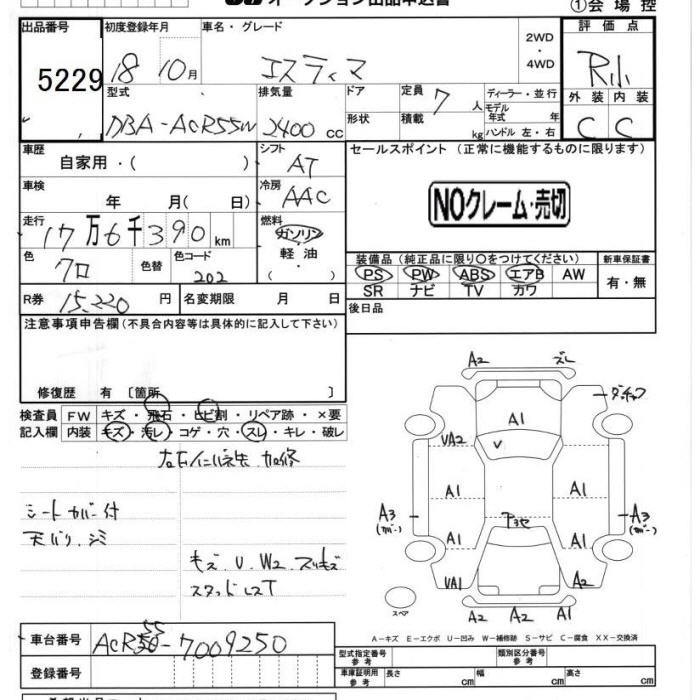 オークション出品申込書
①会場控
出品番号 初度登録年月 車名・グレード 評価点
5229 18 10月 エスティマ 2WD・4WD R小
型式 排気量 ドア 定員 ディーラー・並行 外装 内装
DBA-ACR55W 2400cc 7人 モデル年式 年 C C
形状 積載 kg ハンドル 左・右
車歴 シフト セールスポイント (正常に機能するものに限ります)
自家用・( ) AT
車検 冷房 NOクレーム・売切
年 月( 日) AAC
走行 燃料
17万6千390km ガソリン
軽油・( )
色 色替 色コード 装備品 (純正品に限り○をつけてください) 新車保証書
クロ 202 PS PW ABS エアB AW 有・無
SR ナビ TV カワ
R券 15,220円 名変期限 月 日 後日品
注意事項申告欄(不具合内容等は具体的に記入して下さい)
修復歴 有 〔箇所 〕
検査員 FW キズ・飛石・ヒビ割・リペア跡・×要
記入欄 内装 キズ・汚レ・コゲ・穴・スレ・キレ・破レ
シートカバー付
天バリ シミ
キズ.U.W2.スリキズ
スタッドレスT
A2 ズレ
A1
UA2 V
A1 A1
A3 A3
(カバー) (カバー)
A1 A1
UA1 A2
A2 A2 A1
スペア
A-キズ E-エクボ U-凹み W-補修跡 S-サビ C-腐食 XX-交換済
車台番号 ACR55-7009250
登録番号
型式指定番号 参考 類別区分番号 参考
車庫証明用 参考 長さ cm 幅 cm 高さ cm